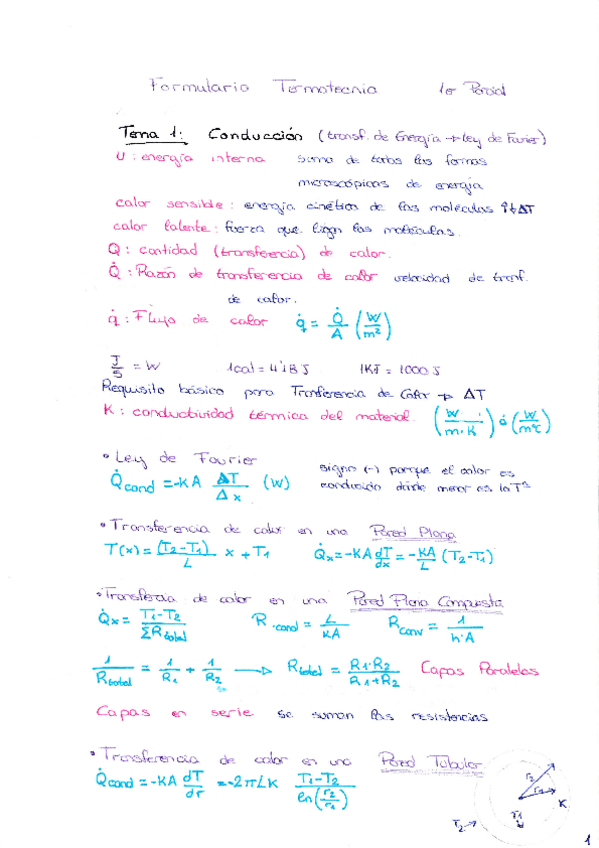 Formulario Termotecnia 1er Parcial
Tema 1: Conducción (transf. de Energía → Ley de Fourier)
U: energía interna suma de todas las formas
microscópicas de energía
calor sensible: energía cinética de las moléculas ↑↓ ΔT
calor latente: fuerza que ligan las moléculas.
Q: cantidad (transferencia) de calor.
Q̇: Razón de transferencia de calor velocidad de transf.
de calor.
q̇: Flujo de calor q̇ = Q̇/A (W/m²)
J/s = W 1cal = 4'18 J 1KJ = 1000 J
Requisito básico para Tranferencia de Calor → ΔT
K: conductividad térmica del material. (W/m·K) ó (W/m°C)
• Ley de Fourier signo (-) porque el calor es
Q̇cond = -KA ΔT/Δx (W) conducido donde menor es la Tª
• Transferencia de calor en una Pared Plana
T(x) = (T2-T1)/L x + T1 Q̇x = -KA dT/dx = -KA/L (T2-T1)
• Transferencia de calor en una Pared Plana Compuesta
Q̇x = T1-T2/ΣRtotal R cond = L/KA Rconv = 1/h·A
1/Rtotal = 1/R1 + 1/R2 → Rtotal = R1·R2/R1+R2 Capas Paralelas
Capas en serie se suman las resistencias
• Transferencia de calor en una Pared Tubular
Q̇cond = -KA dT/dr = -2πLK T1-T2/ln(r2/r1)
r2
r1
K
T1
T2→
1